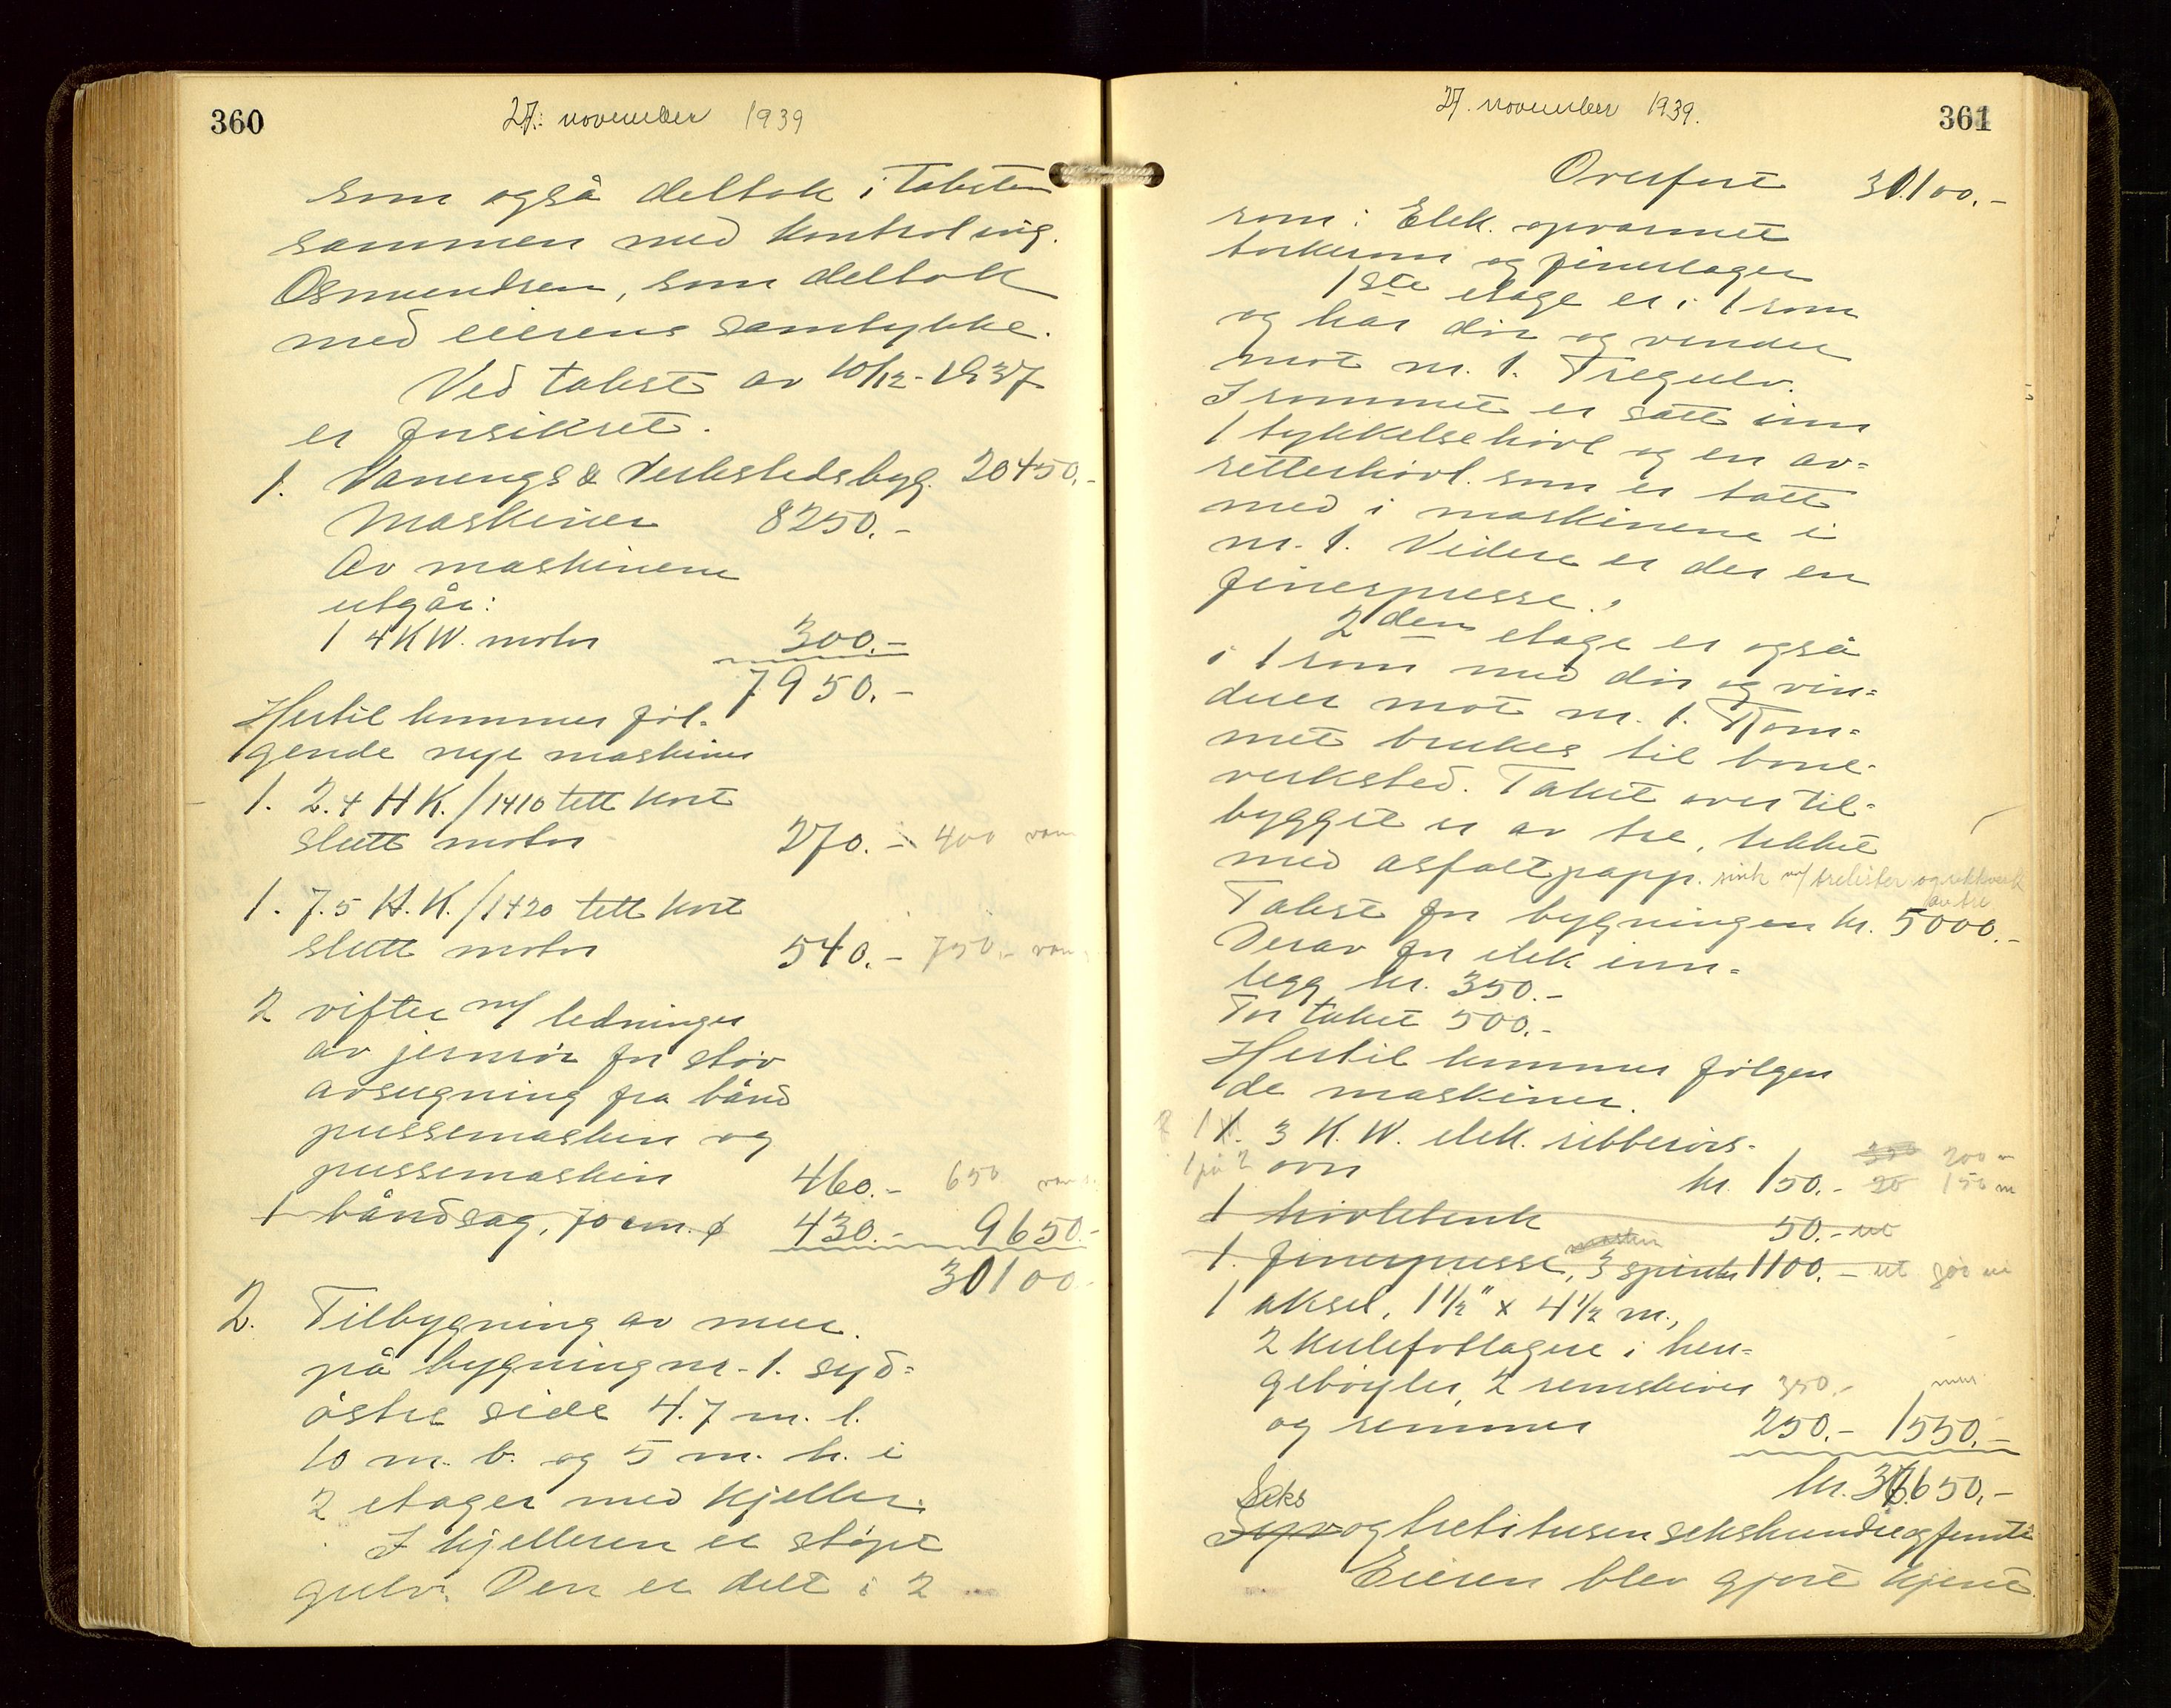 360
27. november 1939
som også deltok i taksten
sammen med kontroling.
Osmundsen, som deltok
med eierens samtykke.
Ved takst av 10/12-1937
er forsikret.
1. Vanings & Verkstedsbyg. 20450.-
Maskiner 8250.-
Av maskinene
utgår:
1 4 KW. motor 300.-
7950.-
Hertil kommer føl-
gende nye maskiner
1. 2.4 H K./1410 tett kort
slutt motor 270.- 400
1. 7.5 H.K./1420 tett kort
slutt motor 540.- 750.-
2 vifter m/ ledninger
av jernrør for støv
avsugning fra bånd
pussemaskin og
pussemaskin 460.- 650
1 båndsag, 70 cm. ø 430.- 9650.-
30100
2. Tilbygning av mur.
på bygning nr. 1. syd=
østre side 4.7 m. l.
10 m. b. og 5 m. h. i
2 etager med kjeller.
I kjelleren er støpt
gulv. Den er delt i 2
27. november 1939.
361
Overført 30100.-
rom: Elek. opvarmet
tørkerom og finerlager
1ste etage er i 1 rom
og har dør og vindu
mot nr. 1. Tregulv.
I rommet er satt inn
1 tykkelsehøvl og en av=
retterhøvl. som er tatt
med i maskinene i
nr. 1. Videre er der en
finerpresse.
2den etage er også
i 1 rom med dør og vin=
duer mot nr. 1. Rom=
met brukes til bone-
verksted. Taket over til=
bygget er av tre, tekket
med asfaltpapp. sink m/ trelister og rekkverk
av tre
Takst for bygningen kr. 5000.-
Derav for elek. inn=
legg kr. 350.-
For taket 500.-
Hertil kommer følgen
de maskiner.
1 1. 3 K.W. elek. ribberørs-
1 på 2 ovn kr. 150.- 200 150
1 høvlebenk 50.- ut
1. finerpresse, 3 spindler 1100.- ut
1 aksel, 1 1/2" x 4 1/2 m.,
2 kulefotlagere i hen=
gebøyler, 2 remskiver 350.-
og remmer 250.- 1550.-
kr. 36650.-
Seks
Syv og tretitusen sekshundre og femti
Eieren blev gjort kjent